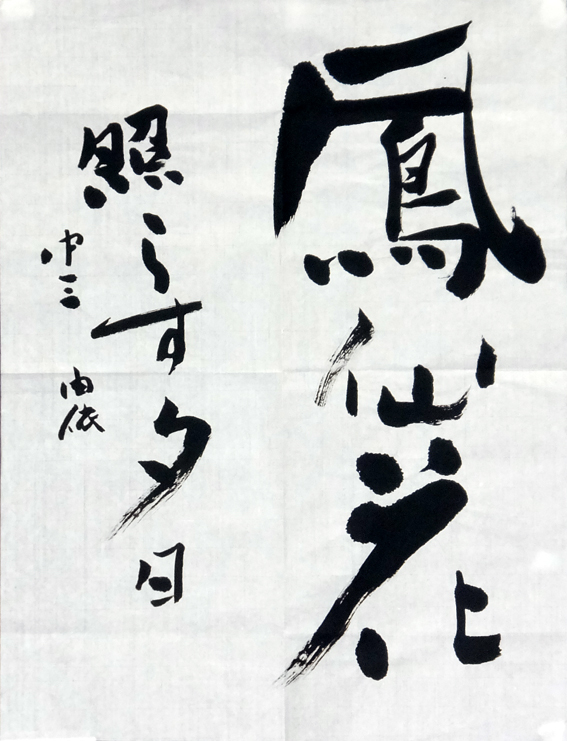 鳳仙花
照らす夕日
中三 由依